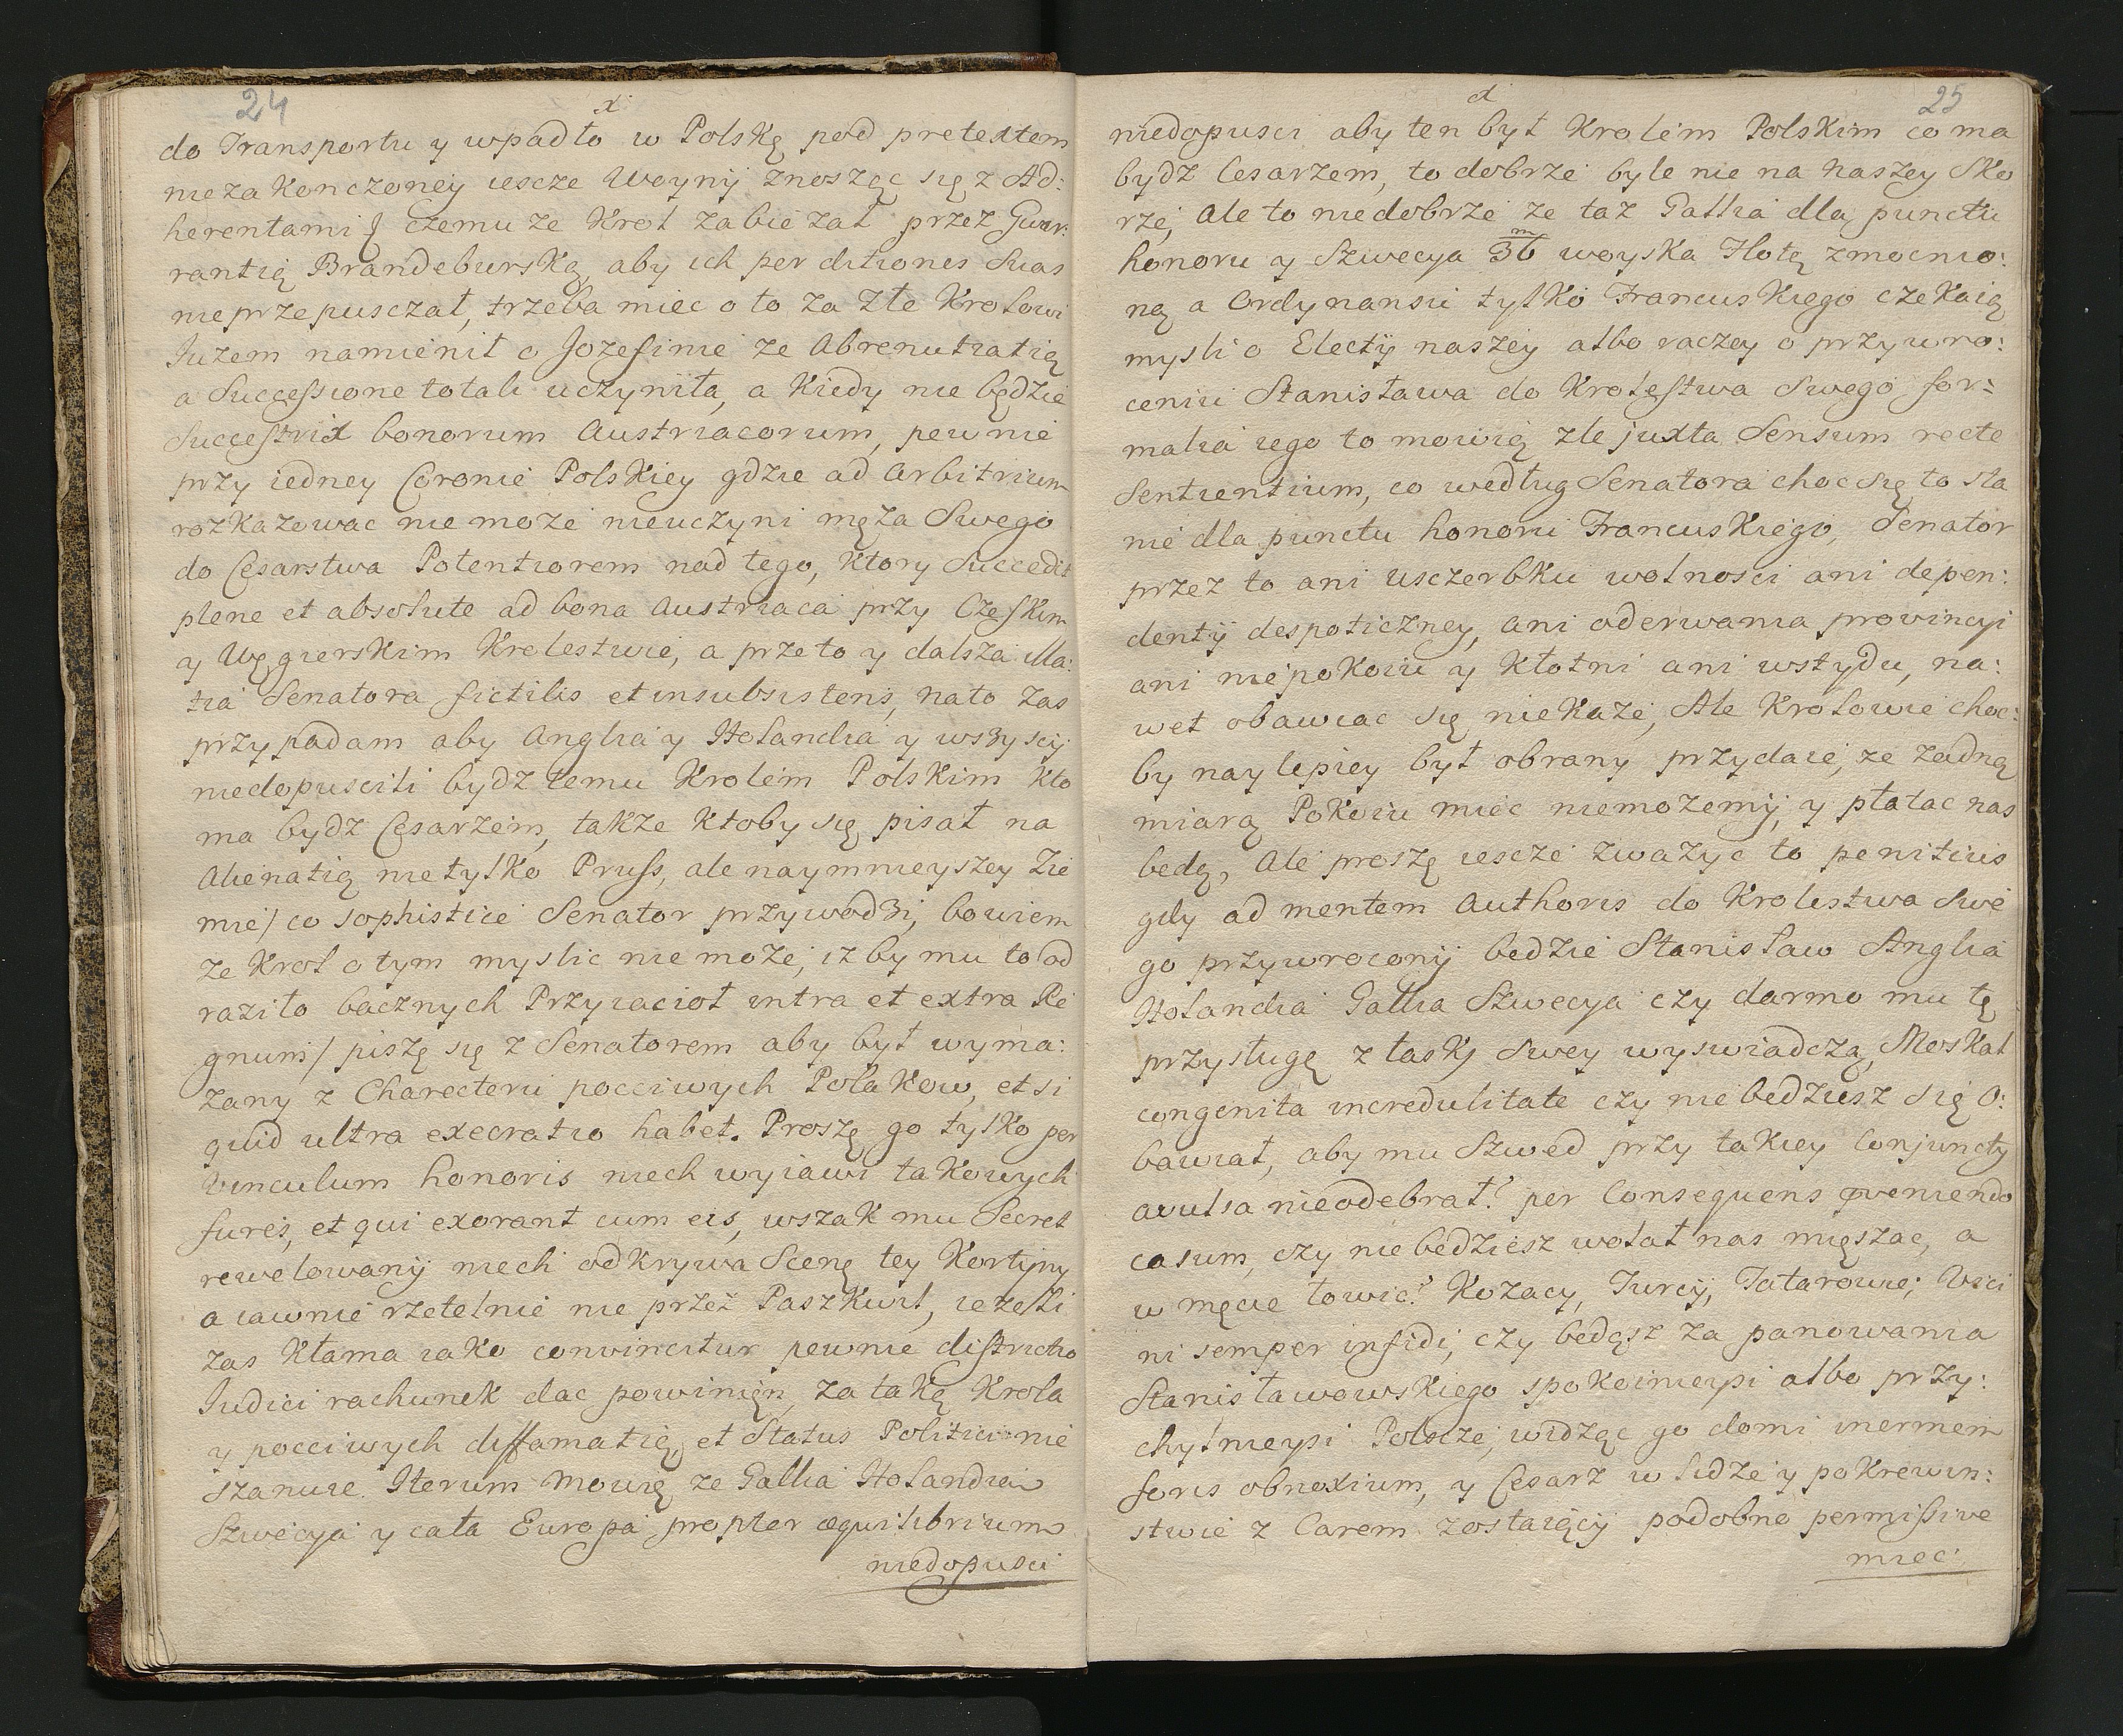 24
x
do Transportu y wpadło w Polskę pod pretextem
niezakonczoney iescze Woyny znosząc się z Ad:
herentami ʃ czemu ze Krol zabiezał przez Gwar:
rantią Brandeburską, aby ich per ditiones Suas
nieprzepusczał, trzeba miec o to za złe Krolowi
Juzem namienił o Jozefinie ze Abrenutiatią
a Successione totali uczyniła, a kiedy nie będzie
Successtrix bonorum Austriacorum, pewnie
przy iedney Coronie Polskiey gdzie ad arbitrium
rozkazowac nie moze nieuczyni męza Swego
do Cesarstwa Potentiorem nad tego, ktory Succedit
plene et absolute ad bona Austriaca przy Czeskim
y Węgierskim Krolestwie, a przeto y dalsza Ma:
tia Senatora fictilis et insubsistens, na to zas
przypadam aby Anglia y Holandia y wszyscy
niedopuscili bydz temu Krolem Polskim kto
ma bydz Cesarzem, takze ktoby się pisał na
Alienatią nie tylko Pruss, ale naymnieyszey Zie
mie / co sophistice Senator przywodzi, bowiem
ze Krol o tym myslic nie moze, iz by mu to od
raziło bacznych Przyiacioł intra et extra Re
gnum / piszę się z Senatorem aby był wyma:
zany z Charecteru pocciwych Polakow, et si
quid ultra execratio habet. Proszę go tylko per
Vinculum honoris niech wyiawi takowych
fures, et qui exorant cum eis, wszak mu Secret
rewelowany niech odkrywa Scenę tey Kortyny
a iawnie rzetelnie nie przez Paszkwil, iezeli
zas kłama iako convincitur pewnie districto
Judici rachunek dac powinien, za taką Krola
y pocciwych diffamatią, et Status Politici nie
szanuie. Iterum Mowię ze Gallia Holandia
Szwecya y cała Europa propter æquilibrium
niedopusci
25
x
niedopusci aby ten był Krolem Polskim co ma
bydz Cesarzem, to dobrze byle nie na naszey Sko
rze, Ale to niedobrze ze taz Gallia dla punctu
honoru y Szwecya 36 m woyska Flotę zmocnio:
ną a Ordynansu tylko Francuskiego czekaią
mysli o Electy naszey albo raczey o przywro:
ceniu Stanisława do Krolestwa Swego for:
malia iego to mowię zle juxta Sensum recte
Sentientium, co według Senatora choc się to sta
nie dla punctu honoru Francuskiego, Senator
przez to ani usczerbku wolnosci ani depen:
denty despoticzney, ani oderwania provincyi
ani niepokoiu y kłotni ani wstydu, na:
wet obawiac się niekaze, Ale Krolowie choc:
by naylepiey był obrany przydaie, ze zadną
miarą Pokoiu miec niemozemy, y płatac nas
bedą, Ale proszę iescze zwazyc to penitius
gdy ad mentem Authoris do Krolestwa Swe
go przywrocony bedzie Stanisław Anglia
Holandia Gallia Szwecya czy darmo mu tę
przysługę z łaski Swey wyswiadczą, Moskal
congenita incredulitate czy nie bedziesz się o:
bawiał, aby mu Szwed przy takiey Conjuncty
avulsa nieodebrał? per Consequens eveniendo
casum, czy nie bedziesz wolał nas mięszac, a
w męcie łowic? Kozacy, Turcy, Tatarowie; Vici
ni semper infidi, czy bedąsz za panowania
Stanisławowskiego spokoinieysi albo przy:
chylnieysi Polscze, widząc go domi inermem
foris obnoxium, y Cesarz w lidze y pokrewin:
stwie z Carem zostaiący podobno permissive
miec